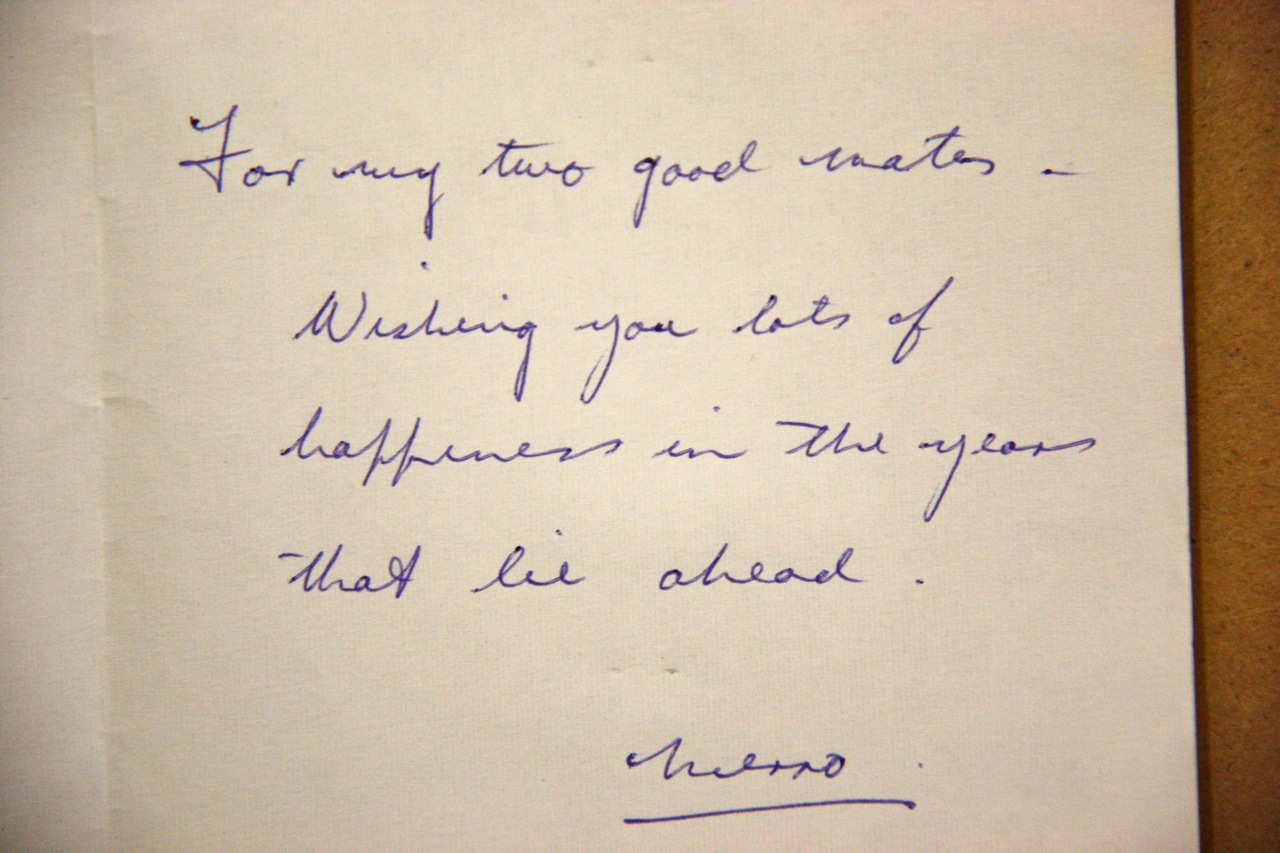 For my two good mates -
Wishing you lots of
happiness in the years
that lie ahead.